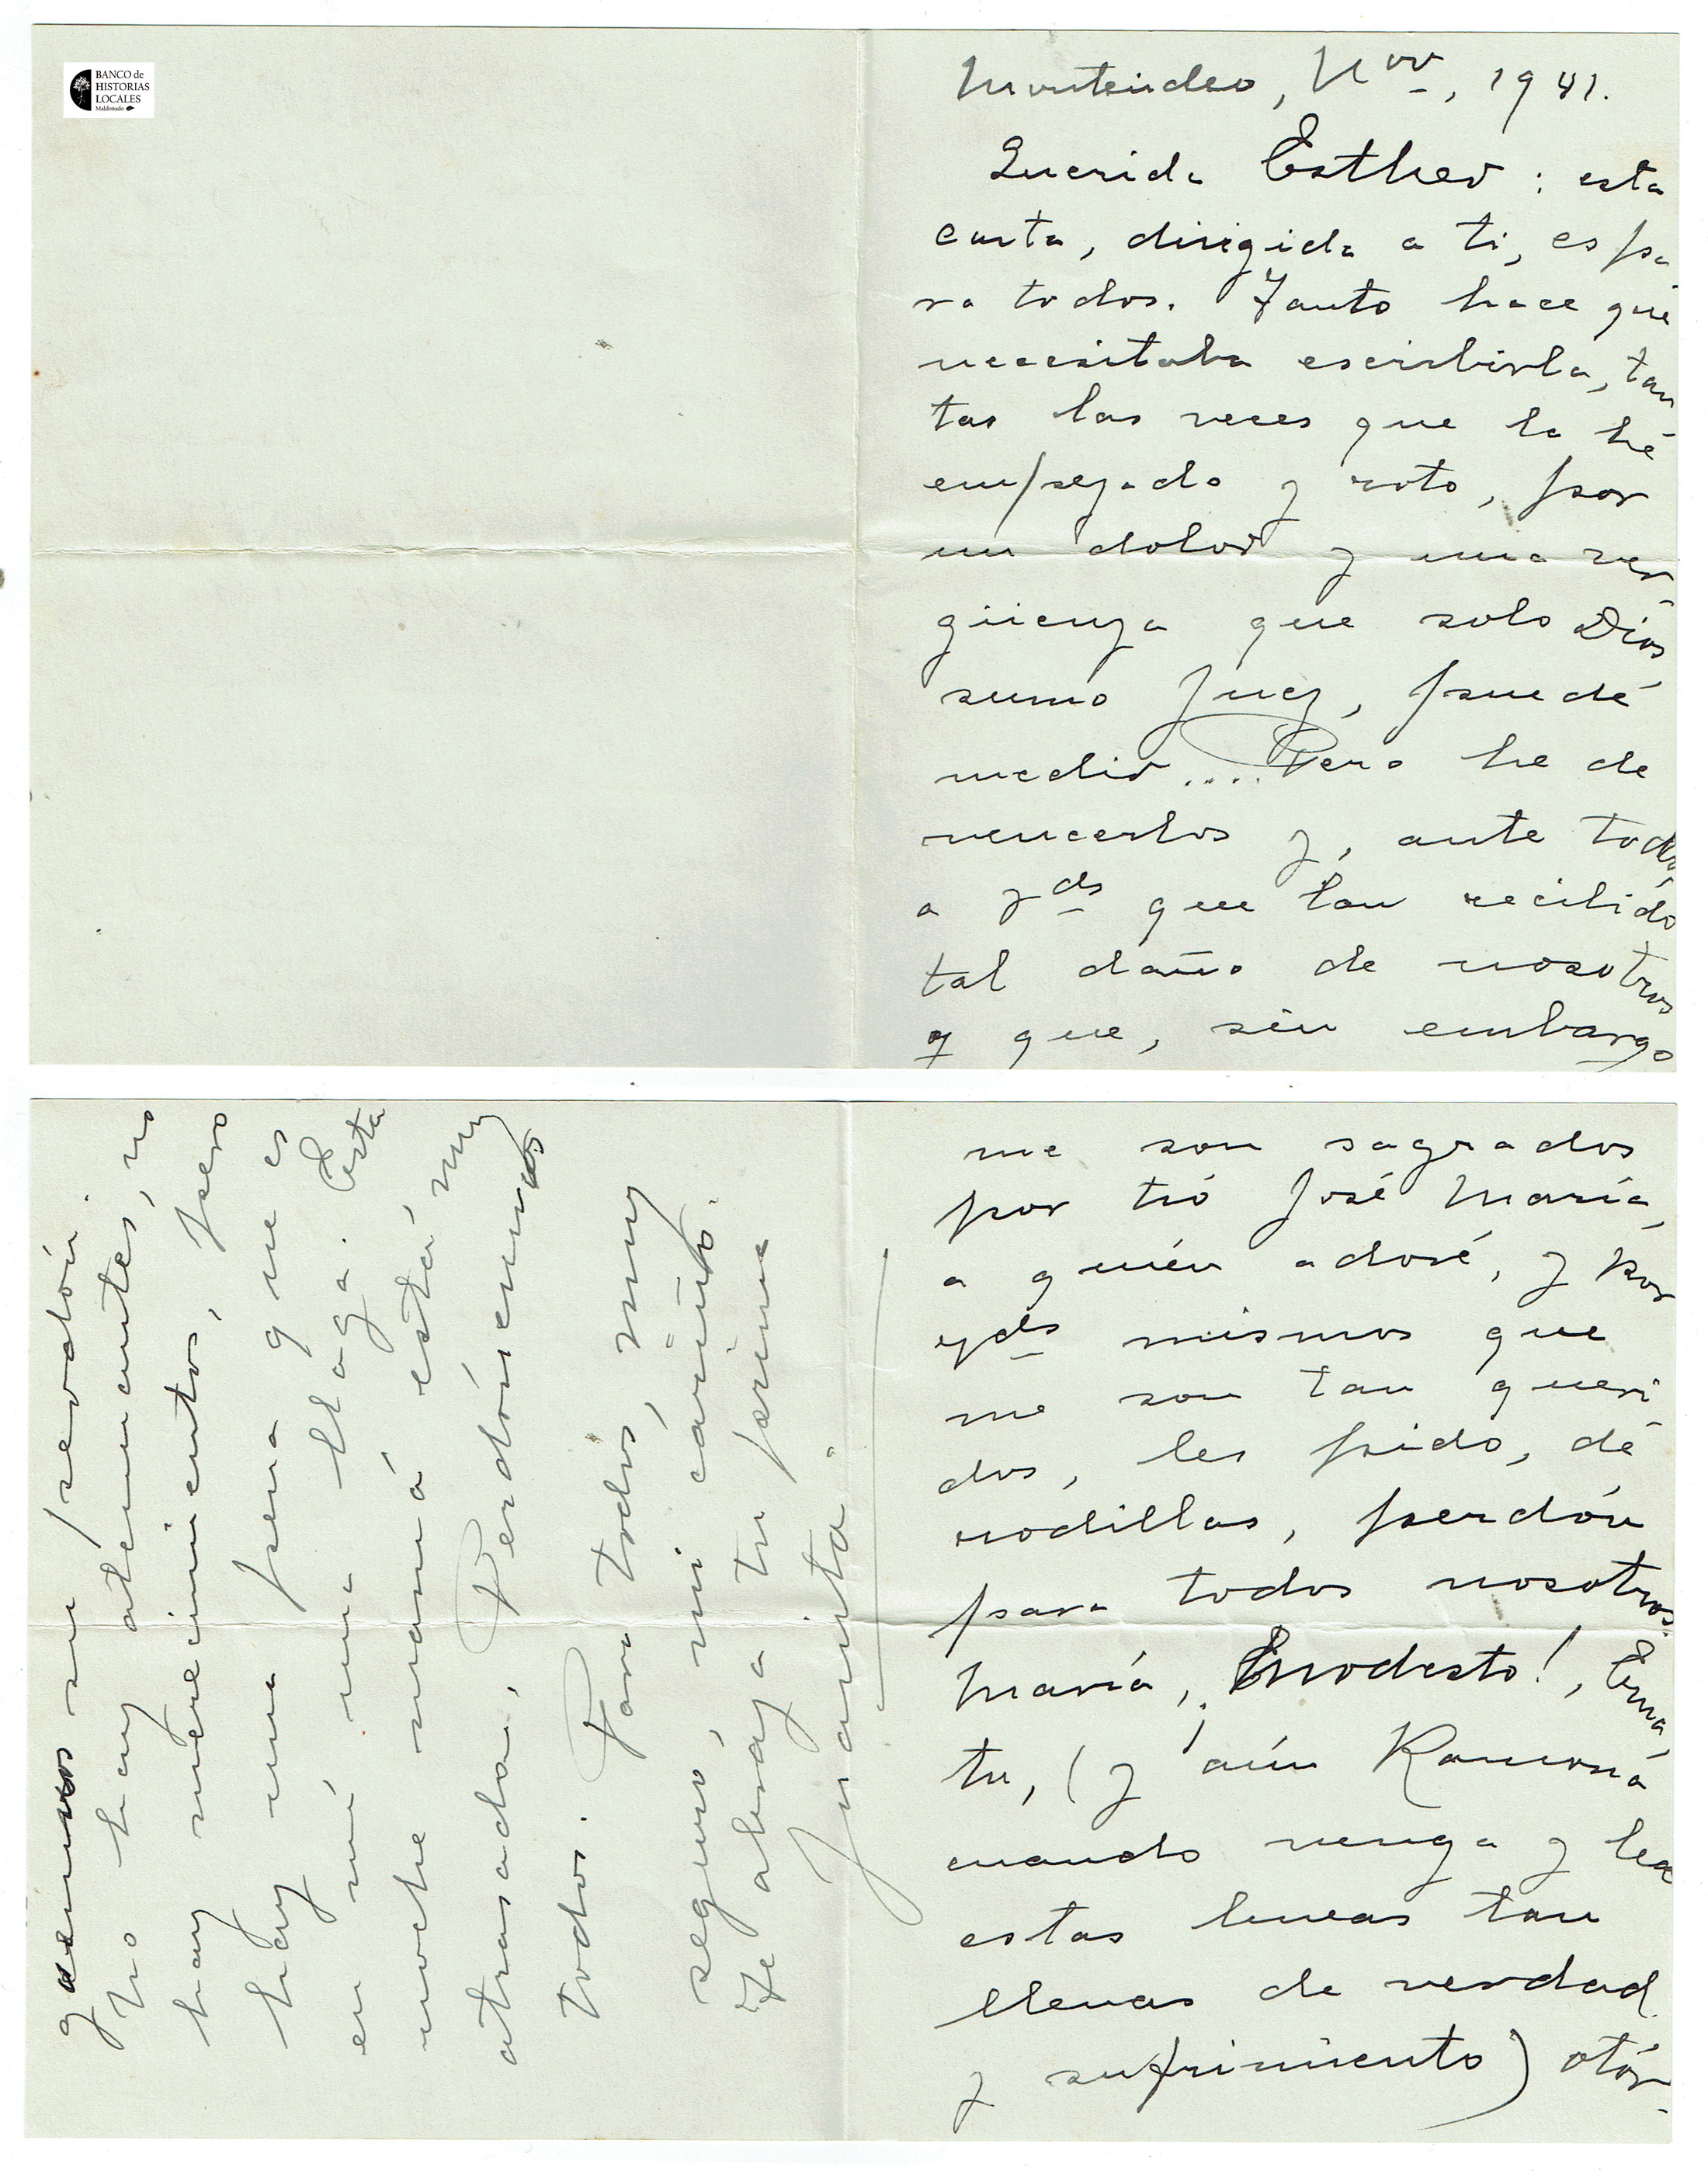 BANCO de
HISTORIAS
LOCALES
Maldonado
Montevideo, Nov, 1941.
Querida Esther: esta
carta, dirigida a ti, es pa
ra todos. Tanto hace que
necesitaba escribirla, tan
tas las veces que la hé
empezado y roto, por
un dolor y una ver
güenza que solo Diós,
sumo Juez, puedé
medir.... Pero he de
vencerlos y, ante todo,
a Vds que tan recibído
tal daño de nosotros
y que, sin embargo
me son sagrados
por tió José María,
a quién adoré, y por
Vds mismos que
me son tan queri
dos, les pido, dé
rodillas, perdón
para todos nosotros.
María, Modesto!, Ema,
tu, (y aún Ramoná
cuando venga y lea
estas lineas tan
llenas de verdad
y sufrimiento) otór-
guennos su perdón.
No hay atenuantes, no
hay merecimientos, pero
hay una pena que es
en mí, una llaga. Esta
noche mamá está, muy
atrasada. Perdónennos
todos. Para todos, muy
seguro, mi cariño.
Te abraza tu prima
Juanita.